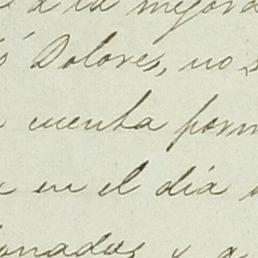 a la mejor
Dolores, no
cuenta form
en el día
onados y